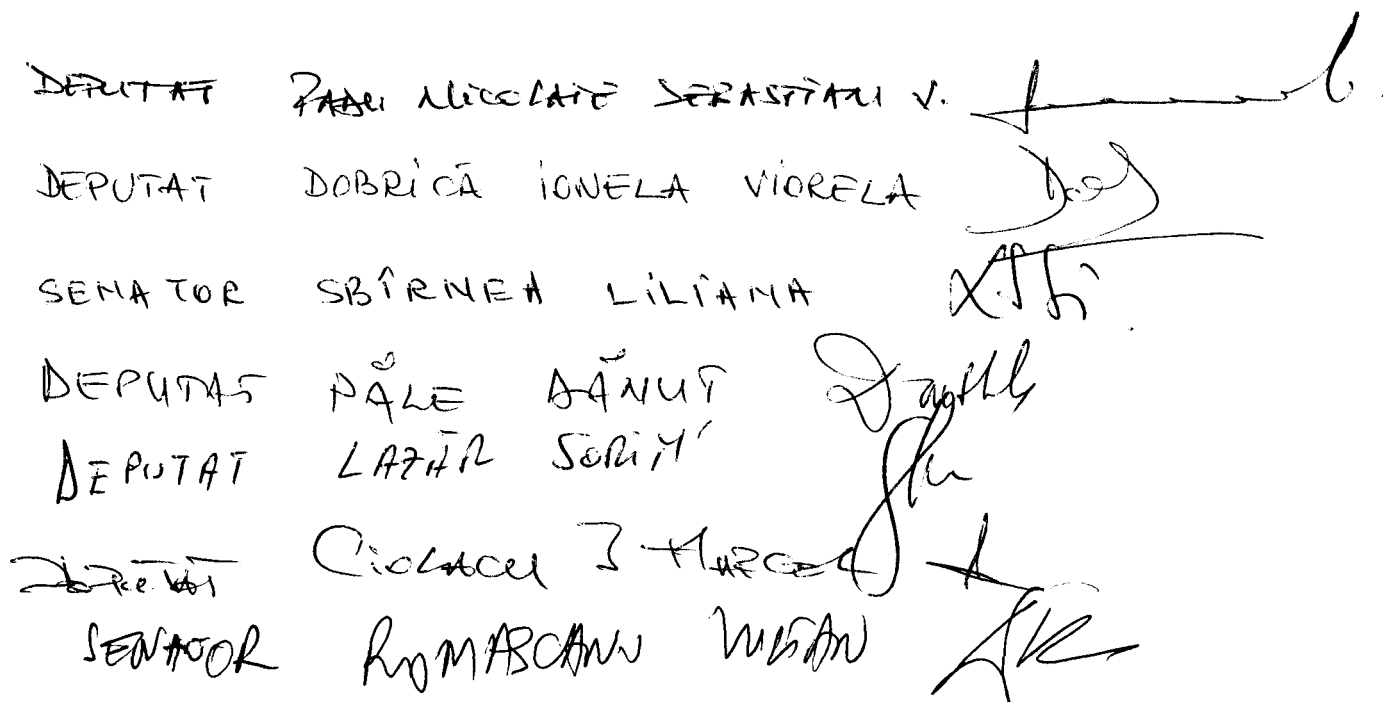 DEPUTAT PAUN NICOLAIE SEBASTIAN V.
DEPUTAT DOBRICĂ IONELA VIORELA
SENATOR SBÎRNEA LILIANA
DEPUTAT PĂLE DĂNUȚ
DEPUTAT LAZĂR SORIN
CIOLACU I MARCEL
SENATOR ROMASCANU LUCIAN